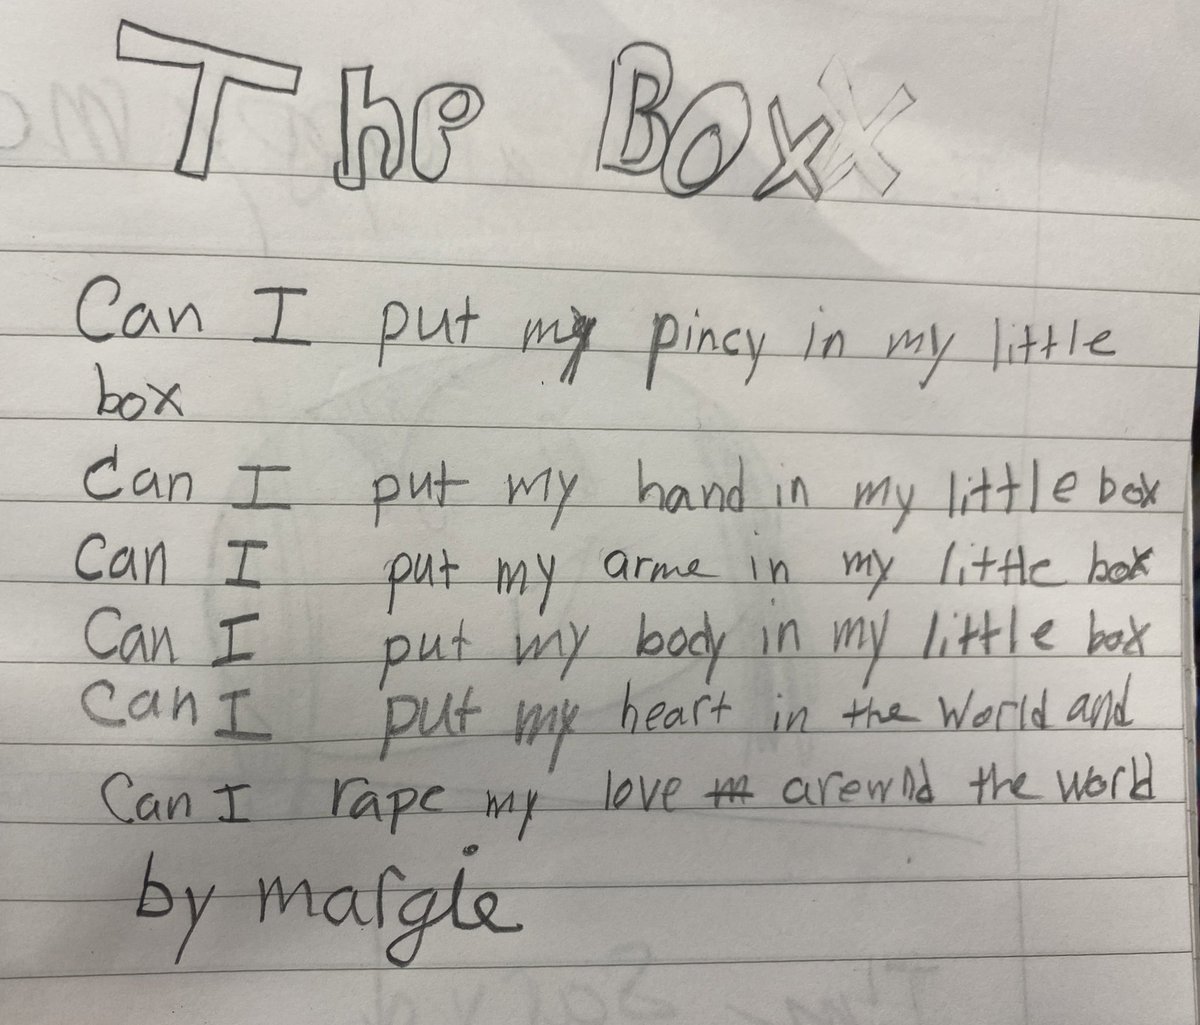 The Box
Can I put my pincy in my little
box
Can I put my hand in my little box
Can I put my arme in my little box
Can I put my body in my little box
Can I put my heart in the World and
Can I rape my love arewnd the world
by margie